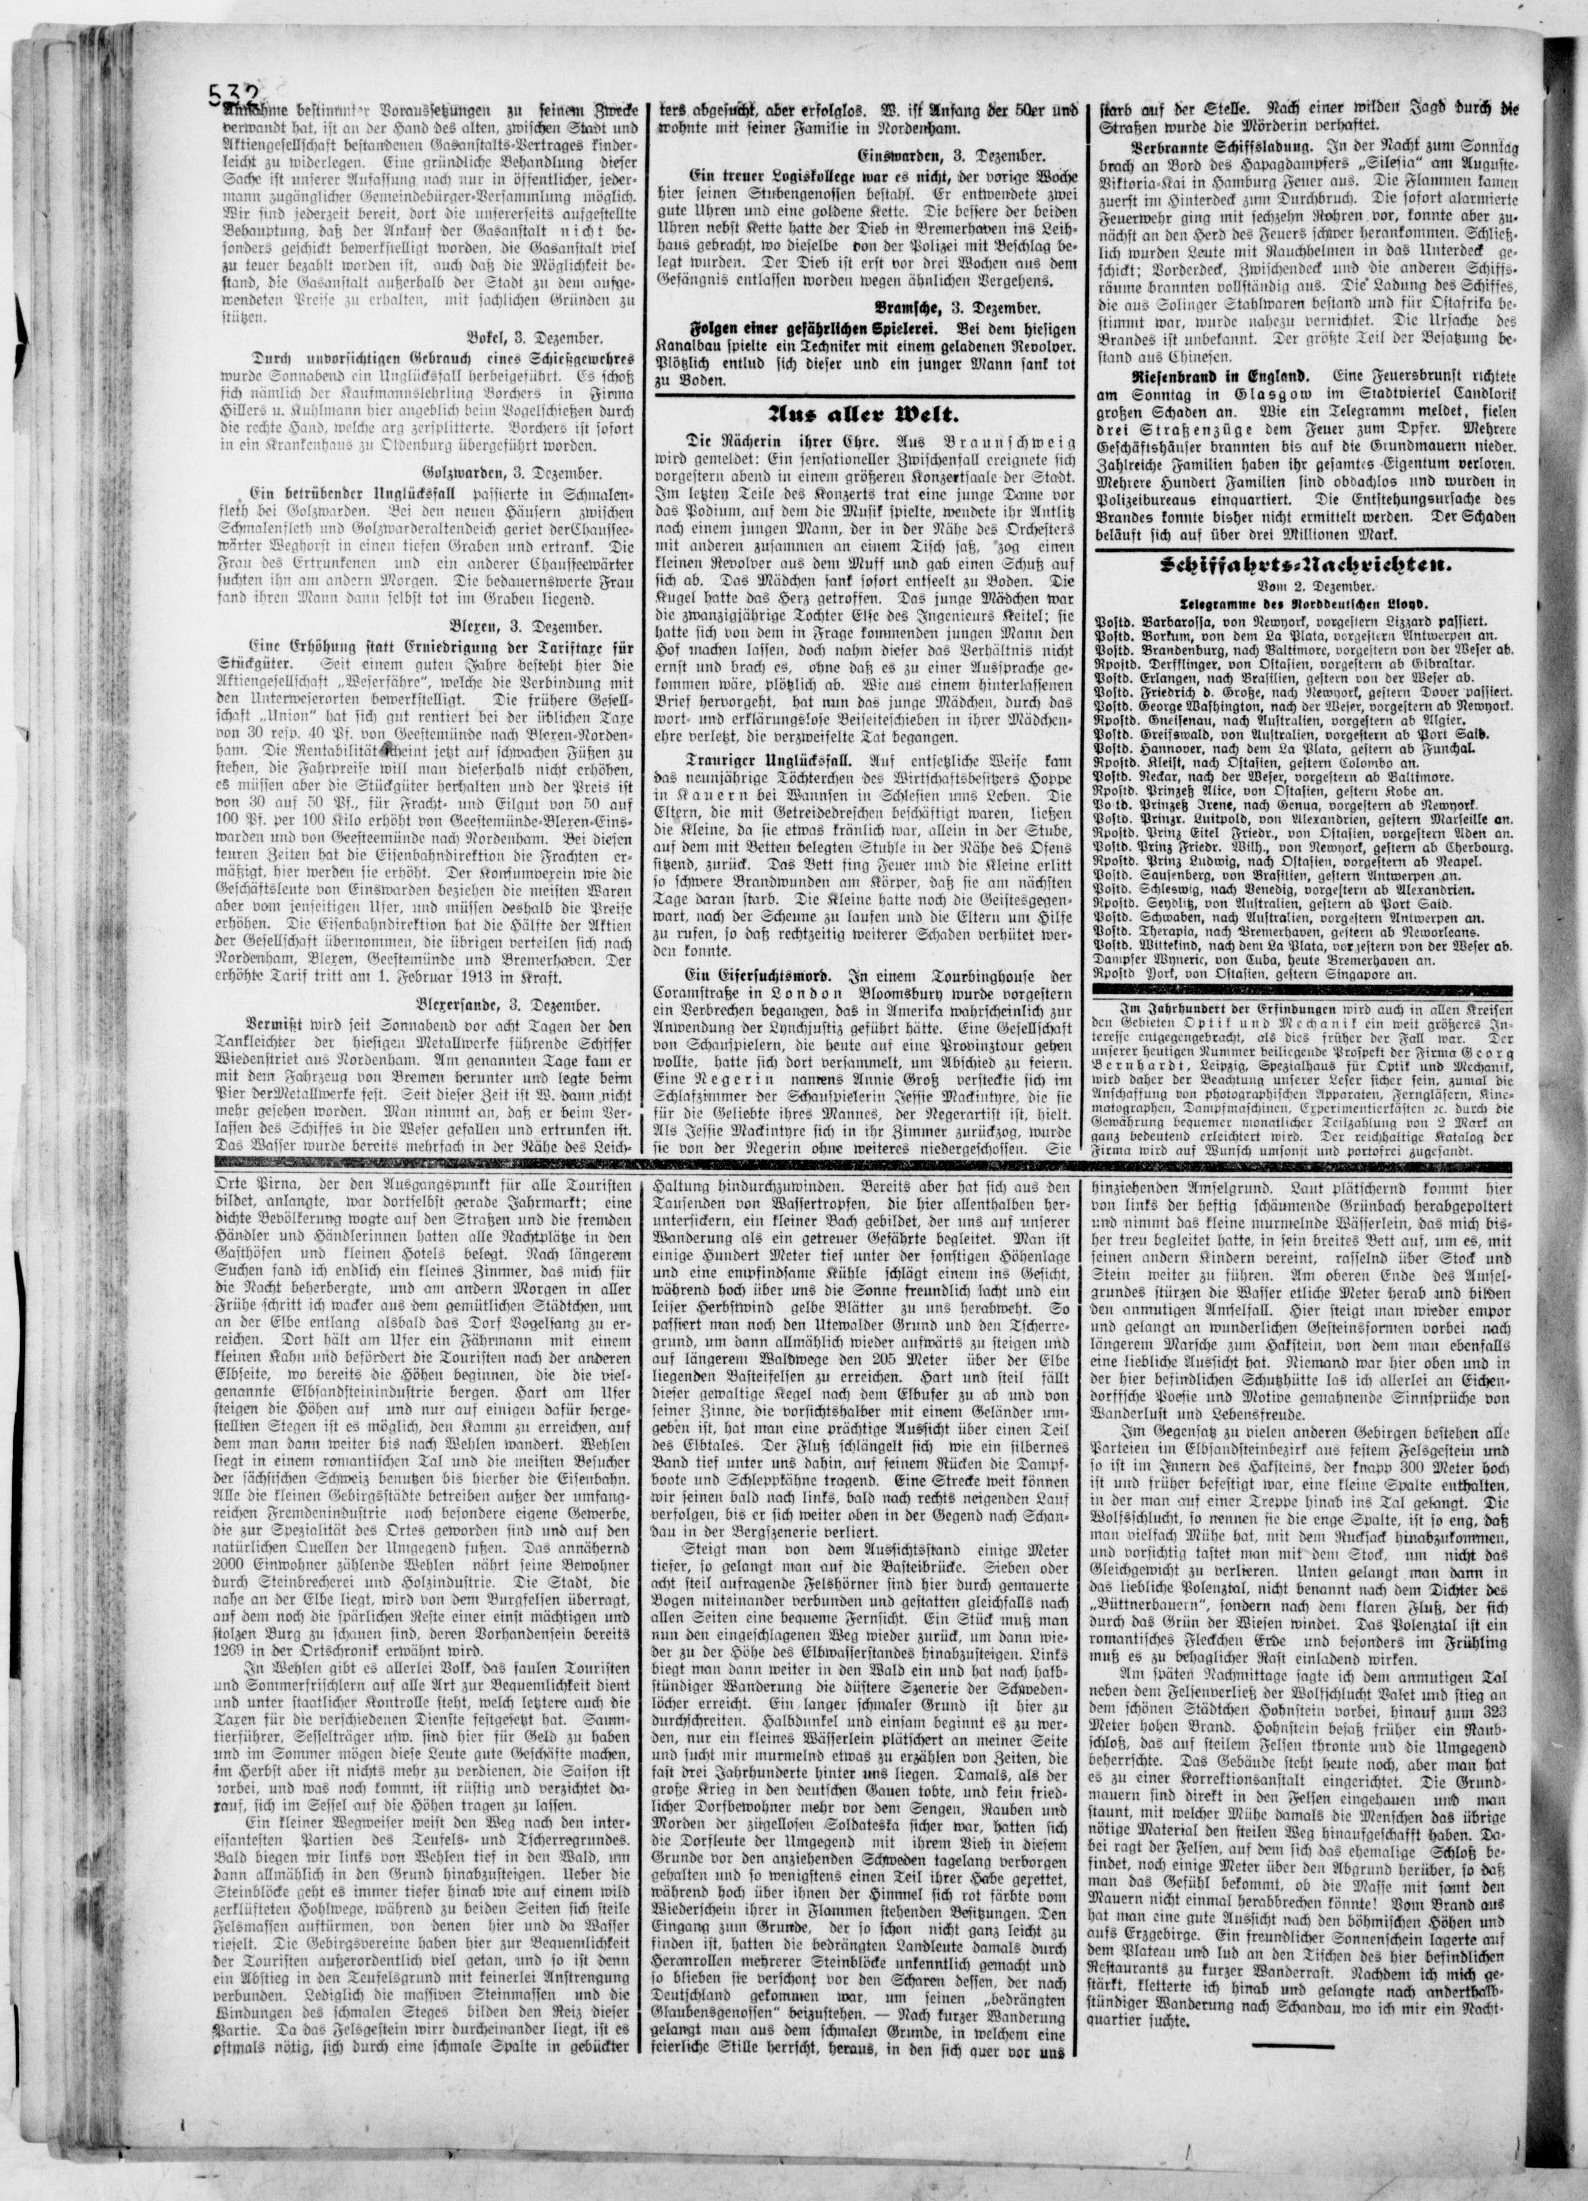 532
Annahme bestimmter Voraussetzungen zu seinem Zwecke
verwandt hat, ist an der Hand des alten, zwischen Stadt und
Aktiengesellschaft bestandenen Gasanstalts-Vertrages kinder-
leicht zu widerlegen. Eine gründliche Behandlung dieser
Sache ist unserer Auffassung nach nur in öffentlicher, jeder-
mann zugänglicher Gemeindebürger-Versammlung möglich.
Wir sind jederzeit bereit, dort die unsererseits aufgestellte
Behauptung, daß der Ankauf der Gasanstalt nicht be-
sonders geschickt bewerkstelligt worden, die Gasanstalt viel
zu teuer bezahlt worden ist, auch daß die Möglichkeit be-
stand, die Gasanstalt außerhalb der Stadt zu dem aufge-
wendeten Preise zu erhalten, mit sachlichen Gründen zu
stützen.
Bokel, 3. Dezember.
Durch unvorsichtigen Gebrauch eines Schießgewehres
wurde Sonnabend ein Unglücksfall herbeigeführt. Es schoß
sich nämlich der Kaufmannslehrling Borchers in Firma
Hillers u. Kuhlmann hier angeblich beim Vogelschießen durch
die rechte Hand, welche arg zersplitterte. Borchers ist sofort
in ein Krankenhaus zu Oldenburg übergeführt worden.
Golzwarden, 3. Dezember.
Ein betrübender Unglücksfall passierte in Schmalen-
fleth bei Golzwarden. Bei den neuen Häusern zwischen
Schmalenfleth und Golzwarderaltendeich geriet der Chaussee-
wärter Weghorst in einen tiefen Graben und ertrank. Die
Frau des Ertrunkenen und ein anderer Chausseewärter
suchten ihn am andern Morgen. Die bedauernswerte Frau
fand ihren Mann dann selbst tot im Graben liegend.
Blexen, 3. Dezember.
Eine Erhöhung statt Erniedrigung der Tariftaxe für
Stückgüter. Seit einem guten Jahre besteht hier die
Aktiengesellschaft „Weserfähre“, welche die Verbindung mit
den Unterweserorten bewerkstelligt. Die frühere Gesell-
schaft „Union“ hat sich gut rentiert bei der üblichen Taxe
von 30 resp. 40 Pf. von Geestemünde nach Blexen-Norden-
ham. Die Rentabilität scheint jetzt auf schwachen Füßen zu
stehen, die Fahrpreise will man dieserhalb nicht erhöhen,
es müssen aber die Stückgüter herhalten und der Preis ist
von 30 auf 50 Pf., für Fracht- und Eilgut von 50 auf
100 Pf. per 100 Kilo erhöht von Geestemünde-Blexen-Eins-
warden und von Geesteemünde nach Nordenham. Bei diesen
teuren Zeiten hat die Eisenbahndirektion die Frachten er-
mäßigt, hier werden sie erhöht. Der Konsumverein wie die
Geschäftsleute von Einswarden beziehen die meisten Waren
aber vom jenseitigen Ufer, und müssen deshalb die Preise
erhöhen. Die Eisenbahndirektion hat die Hälfte der Aktien
der Gesellschaft übernommen, die übrigen verteilen sich nach
Nordenham, Blexen, Geestemünde und Bremerhaven. Der
erhöhte Tarif tritt am 1. Februar 1913 in Kraft.
Blexersande, 3. Dezember.
Vermißt wird seit Sonnabend vor acht Tagen der den
Tankleichter der hiesigen Metallwerke führende Schiffer
Wiedenstriet aus Nordenham. Am genannten Tage kam er
mit dem Fahrzeug von Bremen herunter und legte beim
Pier der Metallwerke fest. Seit dieser Zeit ist W. dann nicht
mehr gesehen worden. Man nimmt an, daß er beim Ver-
lassen des Schiffes in die Weser gefallen und ertrunken ist.
Das Wasser wurde bereits mehrfach in der Nähe des Leich-
ters abgesucht, aber erfolglos. W. ist Anfang der 50er und
wohnte mit seiner Familie in Nordenham.
Einswarden, 3. Dezember.
Ein treuer Logiskollege war es nicht, der vorige Woche
hier seinen Stubengenossen bestahl. Er entwendete zwei
gute Uhren und eine goldene Kette. Die bessere der beiden
Uhren nebst Kette hatte der Dieb in Bremerhaven ins Leih-
haus gebracht, wo dieselbe von der Polizei mit Beschlag be-
legt wurden. Der Dieb ist erst vor drei Wochen aus dem
Gefängnis entlassen worden wegen ähnlichen Vergehens.
Bramsche, 3. Dezember.
Folgen einer gefährlichen Spielerei. Bei dem hiesigen
Kanalbau spielte ein Techniker mit einem geladenen Revolver.
Plötzlich entlud sich dieser und ein junger Mann sank tot
zu Boden.
Aus aller Welt.
Die Rächerin ihrer Ehre. Aus Braunschweig
wird gemeldet: Ein sensationeller Zwischenfall ereignete sich
vorgestern abend in einem größeren Konzertsaale der Stadt.
Im letzten Teile des Konzerts trat eine junge Dame vor
das Podium, auf dem die Musik spielte, wendete ihr Antlitz
nach einem jungen Mann, der in der Nähe des Orchesters
mit anderen zusammen an einem Tisch saß, zog einen
kleinen Revolver aus dem Muff und gab einen Schuß auf
sich ab. Das Mädchen sank sofort entseelt zu Boden. Die
Kugel hatte das Herz getroffen. Das junge Mädchen war
die zwanzigjährige Tochter Else des Ingenieurs Keitel; sie
hatte sich von dem in Frage kommenden jungen Mann den
Hof machen lassen, doch nahm dieser das Verhältnis nicht
ernst und brach es, ohne daß es zu einer Aussprache ge-
kommen wäre, plötzlich ab. Wie aus einem hinterlassenen
Brief hervorgeht, hat nun das junge Mädchen, durch das
wort- und erklärungslose Beiseiteschieben in ihrer Mädchen-
ehre verletzt, die verzweifelte Tat begangen.
Trauriger Unglücksfall. Auf entsetzliche Weise kam
das neunjährige Töchterchen des Wirtschaftsbesitzers Hoppe
in Kauern bei Wannsen in Schlesien ums Leben. Die
Eltern, die mit Getreidedreschen beschäftigt waren, ließen
die Kleine, da sie etwas kränlich war, allein in der Stube,
auf dem mit Betten belegten Stuhle in der Nähe des Ofens
sitzend, zurück. Das Bett fing Feuer und die Kleine erlitt
so schwere Brandwunden am Körper, daß sie am nächsten
Tage daran starb. Die Kleine hatte noch die Geistesgegen-
wart, nach der Scheune zu laufen und die Eltern um Hilfe
zu rufen, so daß rechtzeitig weiterer Schaden verhütet wer-
den konnte.
Ein Eifersuchtsmord. In einem Tourbinghouse der
Coramstraße in London Bloomsbury wurde vorgestern
ein Verbrechen begangen, das in Amerika wahrscheinlich zur
Anwendung der Lynchjustiz geführt hätte. Eine Gesellschaft
von Schauspielern, die heute auf eine Provinztour gehen
wollte, hatte sich dort versammelt, um Abschied zu feiern.
Eine Negerin namens Annie Groß versteckte sich im
Schlafzimmer der Schauspielerin Jessie Mackintyre, die sie
für die Geliebte ihres Mannes, der Negerartist ist, hielt.
Als Jessie Mackintyre sich in ihr Zimmer zurückzog, wurde
sie von der Negerin ohne weiteres niedergeschossen. Sie
starb auf der Stelle. Nach einer wilden Jagd durch die
Straßen wurde die Mörderin verhaftet.
Verbrannte Schiffsladung. In der Nacht zum Sonntag
brach an Bord des Hapagdampfers „Silesia“ am Auguste-
Viktoria-Kai in Hamburg Feuer aus. Die Flammen kamen
zuerst im Hinterdeck zum Durchbruch. Die sofort alarmierte
Feuerwehr ging mit sechzehn Rohren vor, konnte aber zu-
nächst an den Herd des Feuers schwer herankommen. Schließ-
lich wurden Leute mit Rauchhelmen in das Unterdeck ge-
schickt; Vorderdeck, Zwischendeck und die anderen Schiffs-
räume brannten vollständig aus. Die Ladung des Schiffes,
die aus Solinger Stahlwaren bestand und für Ostafrika be-
stimmt war, wurde nahezu vernichtet. Die Ursache des
Brandes ist unbekannt. Der größte Teil der Besatzung be-
stand aus Chinesen.
Riesenbrand in England. Eine Feuersbrunst richtete
am Sonntag in Glasgow im Stadtviertel Candlorik
großen Schaden an. Wie ein Telegramm meldet, fielen
drei Straßenzüge dem Feuer zum Opfer. Mehrere
Geschäftshäuser brannten bis auf die Grundmauern nieder.
Zahlreiche Familien haben ihr gesamtes Eigentum verloren.
Mehrere Hundert Familien sind obdachlos und wurden in
Polizeibureaus einquartiert. Die Entstehungsursache des
Brandes konnte bisher nicht ermittelt werden. Der Schaden
beläuft sich auf über drei Millionen Mark.
Schiffahrts-Nachrichten.
Vom 2. Dezember.
Telegramme des Norddeutschen Lloyd.
Postd. Barbarossa, von Newyork, vorgestern Lizzard passiert.
Postd. Borkum, von dem La Plata, vorgestern Antwerpen an.
Postd. Brandenburg, nach Baltimore, vorgestern von der Weser ab.
Rpostd. Derfflinger, von Ostasien, vorgestern ab Gibraltar.
Postd. Erlangen, nach Brasilien, gestern von der Weser ab.
Postd. Friedrich d. Große, nach Newyork, gestern Dover passiert.
Postd. George Washington, nach der Weser, vorgestern ab Newyork.
Rpostd. Gneisenau, nach Australien, vorgestern ab Algier.
Postd. Greifswald, von Australien, vorgestern ab Port Said.
Postd. Hannover, nach dem La Plata, gestern ab Funchal.
Rpostd. Kleist, nach Ostasien, gestern Colombo an.
Postd. Neckar, nach der Weser, vorgestern ab Baltimore.
Rpostd. Prinzeß Alice, von Ostasien, gestern Kobe an.
Postd. Prinzeß Irene, nach Genua, vorgestern ab Newyork.
Postd. Prinzr. Luitpold, von Alexandrien, gestern Marseille an.
Rpostd. Prinz Eitel Friedr., von Ostasien, vorgestern Aden an.
Postd. Prinz Friedr. Wilh., von Newyork, gestern ab Cherbourg.
Rpostd. Prinz Ludwig, nach Ostasien, vorgestern ab Neapel.
Postd. Sausenberg, von Brasilien, gestern Antwerpen an.
Postd. Schleswig, nach Venedig, vorgestern ab Alexandrien.
Rpostd. Seydlitz, von Australien, gestern ab Port Said.
Postd. Schwaben, nach Australien, vorgestern Antwerpen an.
Postd. Therapia, nach Bremerhaven, gestern ab Neworleans.
Postd. Wittekind, nach dem La Plata, vorgestern von der Weser ab.
Dampfer Wyneric, von Cuba, heute Bremerhaven an.
Rpostd York, von Ostasien, gestern Singapore an.
Im Jahrhundert der Erfindungen wird auch in allen Kreisen
den Gebieten Optik und Mechanik ein weit größeres In-
teresse entgegengebracht, als dies früher der Fall war. Der
unserer heutigen Nummer beiliegende Prospekt der Firma Georg
Bernhardt, Leipzig, Spezialhaus für Optik und Mechanik,
wird daher der Beachtung unserer Leser sicher sein, zumal die
Anschaffung von photographischen Apparaten, Ferngläsern, Kine-
matographen, Dampfmaschinen, Experimentierkästen ꝛc. durch die
Gewährung bequemer monatlicher Teilzahlung von 2 Mark an
ganz bedeutend erleichtert wird. Der reichhaltige Katalog der
Firma wird auf Wunsch umsonst und portofrei zugesandt.
Orte Pirna, der den Ausgangspunkt für alle Touristen
bildet, anlangte, war dortselbst gerade Jahrmarkt; eine
dichte Bevölkerung wogte auf den Straßen und die fremden
Händler und Händlerinnen hatten alle Nachtplätze in den
Gasthöfen und kleinen Hotels belegt. Nach längerem
Suchen fand ich endlich ein kleines Zimmer, das mich für
die Nacht beherbergte, und am andern Morgen in aller
Frühe schritt ich wacker aus dem gemütlichen Städtchen, um
an der Elbe entlang alsbald das Dorf Vogelsang zu er-
reichen. Dort hält am Ufer ein Fährmann mit einem
kleinen Kahn und befördert die Touristen nach der anderen
Elbseite, wo bereits die Höhen beginnen, die die viel-
genannte Elbsandsteinindustrie bergen. Hart am Ufer
steigen die Höhen auf und nur auf einigen dafür herge-
stellten Stegen ist es möglich, den Kamm zu erreichen, auf
dem man dann weiter bis nach Wehlen wandert. Wehlen
liegt in einem romantischen Tal und die meisten Besucher
der sächsischen Schweiz benutzen bis hierher die Eisenbahn.
Alle die kleinen Gebirgsstädte betreiben außer der umfang-
reichen Fremdenindustrie noch besondere eigene Gewerbe,
die zur Spezialität des Ortes geworden sind und auf den
natürlichen Quellen der Umgegend fußen. Das annähernd
2000 Einwohner zählende Wehlen nährt seine Bewohner
durch Steinbrecherei und Holzindustrie. Die Stadt, die
nahe an der Elbe liegt, wird von dem Burgfelsen überragt,
auf dem noch die spärlichen Reste einer einst mächtigen und
stolzen Burg zu schauen sind, deren Vorhandensein bereits
1269 in der Ortschronik erwähnt wird.
In Wehlen gibt es allerlei Volk, das faulen Touristen
und Sommerfrischlern auf alle Art zur Bequemlichkeit dient
und unter staatlicher Kontrolle steht, welch letztere auch die
Taxen für die verschiedenen Dienste festgesetzt hat. Saum-
tierführer, Sesselträger usw. sind hier für Geld zu haben
und im Sommer mögen diese Leute gute Geschäfte machen,
im Herbst aber ist nichts mehr zu verdienen, die Saison ist
vorbei, und was noch kommt, ist rüstig und verzichtet da-
rauf, sich im Sessel auf die Höhen tragen zu lassen.
Ein kleiner Wegweiser weist den Weg nach den inter-
essantesten Partien des Teufels- und Tscherregrundes.
Bald biegen wir links von Wehlen tief in den Wald, um
dann allmählich in den Grund hinabzusteigen. Ueber die
Steinblöcke geht es immer tiefer hinab wie auf einem wild
zerklüfteten Hohlwege, während zu beiden Seiten sich steile
Felsmassen auftürmen, von denen hier und da Wasser
rieselt. Die Gebirgsvereine haben hier zur Bequemlichkeit
der Touristen außerordentlich viel getan, und so ist denn
ein Abstieg in den Teufelsgrund mit keinerlei Anstrengung
verbunden. Lediglich die massiven Steinmassen und die
Windungen des schmalen Steges bilden den Reiz dieser
Partie. Da das Felsgestein wirr durcheinander liegt, ist es
oftmals nötig, sich durch eine schmale Spalte in gebückter
Haltung hindurchzuwinden. Bereits aber hat sich aus den
Tausenden von Wassertropfen, die hier allenthalben her-
untersickern, ein kleiner Bach gebildet, der uns auf unserer
Wanderung als ein getreuer Gefährte begleitet. Man ist
einige Hundert Meter tief unter der sonstigen Höhenlage
und eine empfindsame Kühle schlägt einem ins Gesicht,
während hoch über uns die Sonne freundlich lacht und ein
leiser Herbstwind gelbe Blätter zu uns herabweht. So
passiert man noch den Utewalder Grund und den Tscherre-
grund, um dann allmählich wieder aufwärts zu steigen und
auf längerem Waldwege den 205 Meter über der Elbe
liegenden Basteifelsen zu erreichen. Hart und steil fällt
dieser gewaltige Kegel nach dem Elbufer zu ab und von
seiner Zinne, die vorsichtshalber mit einem Geländer um-
geben ist, hat man eine prächtige Aussicht über einen Teil
des Elbtales. Der Fluß schlängelt sich wie ein silbernes
Band tief unter uns dahin, auf seinem Rücken die Dampf-
boote und Schleppkähne tragend. Eine Strecke weit können
wir seinen bald nach links, bald nach rechts neigenden Lauf
verfolgen, bis er sich weiter oben in der Gegend nach Schan-
dau in der Bergszenerie verliert.
Steigt man von dem Aussichtsstand einige Meter
tiefer, so gelangt man auf die Basteibrücke. Sieben oder
acht steil aufragende Felshörner sind hier durch gemauerte
Bogen miteinander verbunden und gestatten gleichfalls nach
allen Seiten eine bequeme Fernsicht. Ein Stück muß man
nun den eingeschlagenen Weg wieder zurück, um dann wie-
der zu der Höhe des Elbwasserstandes hinabzusteigen. Links
biegt man dann weiter in den Wald ein und hat nach halb-
stündiger Wanderung die düstere Szenerie der Schweden-
löcher erreicht. Ein langer schmaler Grund ist hier zu
durchschreiten. Halbdunkel und einsam beginnt es zu wer-
den, nur ein kleines Wässerlein plätschert an meiner Seite
und sucht mir murmelnd etwas zu erzählen von Zeiten, die
fast drei Jahrhunderte hinter uns liegen. Damals, als der
große Krieg in den deutschen Gauen tobte, und kein fried-
licher Dorfbewohner mehr vor dem Sengen, Rauben und
Morden der zügellosen Soldateska sicher war, hatten sich
die Dorfleute der Umgegend mit ihrem Vieh in diesem
Grunde vor den anziehenden Schweden tagelang verborgen
gehalten und so wenigstens einen Teil ihrer Habe gerettet,
während hoch über ihnen der Himmel sich rot färbte vom
Wiederschein ihrer in Flammen stehenden Besitzungen. Den
Eingang zum Grunde, der so schon nicht ganz leicht zu
finden ist, hatten die bedrängten Landleute damals durch
Heranrollen mehrerer Steinblöcke unkenntlich gemacht und
so blieben sie verschont vor den Scharen dessen, der nach
Deutschland gekommen war, um seinen „bedrängten
Glaubensgenossen“ beizustehen. — Nach kurzer Wanderung
gelangt man aus dem schmalen Grunde, in welchem eine
feierliche Stille herrscht, heraus, in den sich quer vor uns
hinziehenden Amselgrund. Laut plätschernd kommt hier
von links der heftig schäumende Grünbach herabgepoltert
und nimmt das kleine murmelnde Wässerlein, das mich bis-
her treu begleitet hatte, in sein breites Bett auf, um es, mit
seinen andern Kindern vereint, rasselnd über Stock und
Stein weiter zu führen. Am oberen Ende des Amsel-
grundes stürzen die Wasser etliche Meter herab und bilden
den anmutigen Amselfall. Hier steigt man wieder empor
und gelangt an wunderlichen Gesteinsformen vorbei nach
längerem Marsche zum Hakstein, von dem man ebenfalls
eine liebliche Aussicht hat. Niemand war hier oben und in
der hier befindlichen Schutzhütte las ich allerlei an Eichen-
dorffsche Poesie und Motive gemahnende Sinnsprüche von
Wanderlust und Lebensfreude.
Im Gegensatz zu vielen anderen Gebirgen bestehen alle
Parteien im Elbsandsteinbezirk aus festem Felsgestein und
so ist im Innern des Haksteins, der knapp 300 Meter hoch
ist und früher befestigt war, eine kleine Spalte enthalten,
in der man auf einer Treppe hinab ins Tal gelangt. Die
Wolfsschlucht, so nennen sie die enge Spalte, ist so eng, daß
man vielfach Mühe hat, mit dem Rucksack hinabzukommen,
und vorsichtig tastet man mit dem Stock, um nicht das
Gleichgewicht zu verlieren. Unten gelangt man dann in
das liebliche Polenztal, nicht benannt nach dem Dichter des
„Büttnerbauern“, sondern nach dem klaren Fluß, der sich
durch das Grün der Wiesen windet. Das Polenztal ist ein
romantisches Fleckchen Erde und besonders im Frühling
muß es zu behaglicher Rast einladend wirken.
Am späten Nachmittage sagte ich dem anmutigen Tal
neben dem Felsenverließ der Wolfschlucht Valet und stieg an
dem schönen Städtchen Hohnstein vorbei, hinauf zum 323
Meter hohen Brand. Hohnstein besaß früher ein Raub-
schloß, das auf steilem Felsen thronte und die Umgegend
beherrschte. Das Gebäude steht heute noch, aber man hat
es zu einer Korrektionsanstalt eingerichtet. Die Grund-
mauern sind direkt in den Felsen eingehauen und man
staunt, mit welcher Mühe damals die Menschen das übrige
nötige Material den steilen Weg hinaufgeschafft haben. Da-
bei ragt der Felsen, auf dem sich das ehemalige Schloß be-
findet, noch einige Meter über den Abgrund herüber, so daß
man das Gefühl bekommt, ob die Masse mit samt den
Mauern nicht einmal herabbrechen könnte! Vom Brand aus
hat man eine gute Aussicht nach den böhmischen Höhen und
aufs Erzgebirge. Ein freundlicher Sonnenschein lagerte auf
dem Plateau und lud an den Tischen des hier befindlichen
Restaurants zu kurzer Wanderrast. Nachdem ich mich ge-
stärkt, kletterte ich hinab und gelangte nach anderthalb-
stündiger Wanderung nach Schandau, wo ich mir ein Nacht-
quartier suchte.